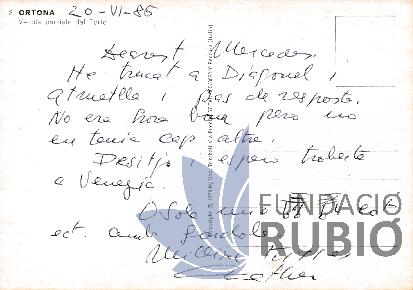 2 ORTONA 20-VI-86
Veduta parziale del Porto
Dearest Mercedes
He trucat a Diagonal i
Atmetlla i pas de resposta.
No era hora bona pero no
en tenia cap altre.
Desitjo i espero trobarte
a Venezia.
O Sole mio
ect. amb gondola
FUNDACIÓ
RUBIÓ